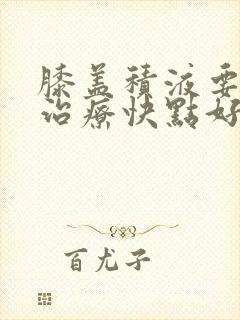 膝盖積液要
治療快點好
百尤子